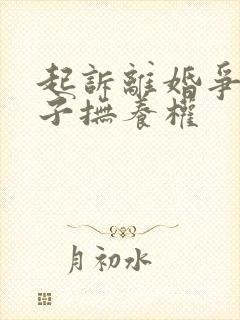 起訴離婚爭
子撫養權
月初水